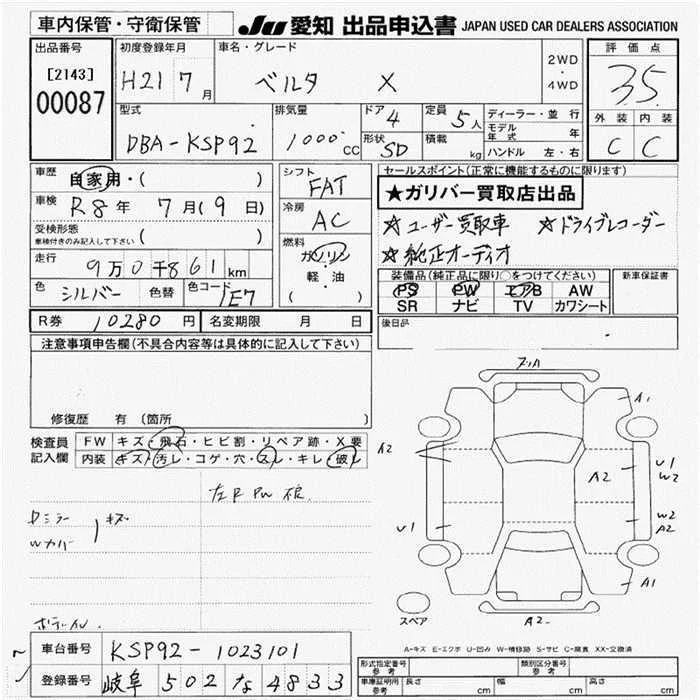 車内保管・守衛保管
JU 愛知 出品申込書 JAPAN USED CAR DEALERS ASSOCIATION
出品番号
[2143]
00087
初度登録年月
H21 7月
車名・グレード
ベルタ X
2WD
・
4WD
評価点
3.5
外装 内装
C C
型式
DBA-KSP92
排気量
1000cc
ドア 4
形状 SD
定員 5人
積載 kg
ディーラー・並行
モデル年式 年
ハンドル 左・右
車歴
自家用・( )
車検
R8年 7月(9日)
受検形態
車検付きのみ記入して下さい ( )
走行
9万0千861km
色 シルバー 色替 色コード 1E7
シフト
FAT
冷房
AC
燃料
ガソリン
・
軽・油
( )
セールスポイント(正常に機能するものに限ります)
★ガリバー買取店出品
☆ユーザー買取車 ☆ドライブレコーダー
☆純正オーディオ
装備品(純正品に限り○をつけてください)
PS PW エアB AW
SR ナビ TV カワシート
新車保証書
後日品
R券 10280円 名変期限 月 日
注意事項申告欄(不具合内容等は具体的に記入して下さい)
修復歴 有(箇所
検査員
記入欄
FW キズ・飛石・ヒビ割・リペア跡・X要
内装 キズ・汚レ・コゲ・穴・スレ・キレ・破レ
左R PW
Dミラー
Wカバー
キズ
A1
A2
A2
U1
W2
U1
W2
A2
A1
A2
スペア
A-キズ E-エクボ U-凹み W-補修跡 S-サビ C-腐食 XX-交換済
車台番号 KSP92-1023101
登録番号 岐阜 502 な 4833
形式指定番号
参考
類別区分番号
参考
車庫証明用
参考
長さ cm 幅 cm 高さ cm